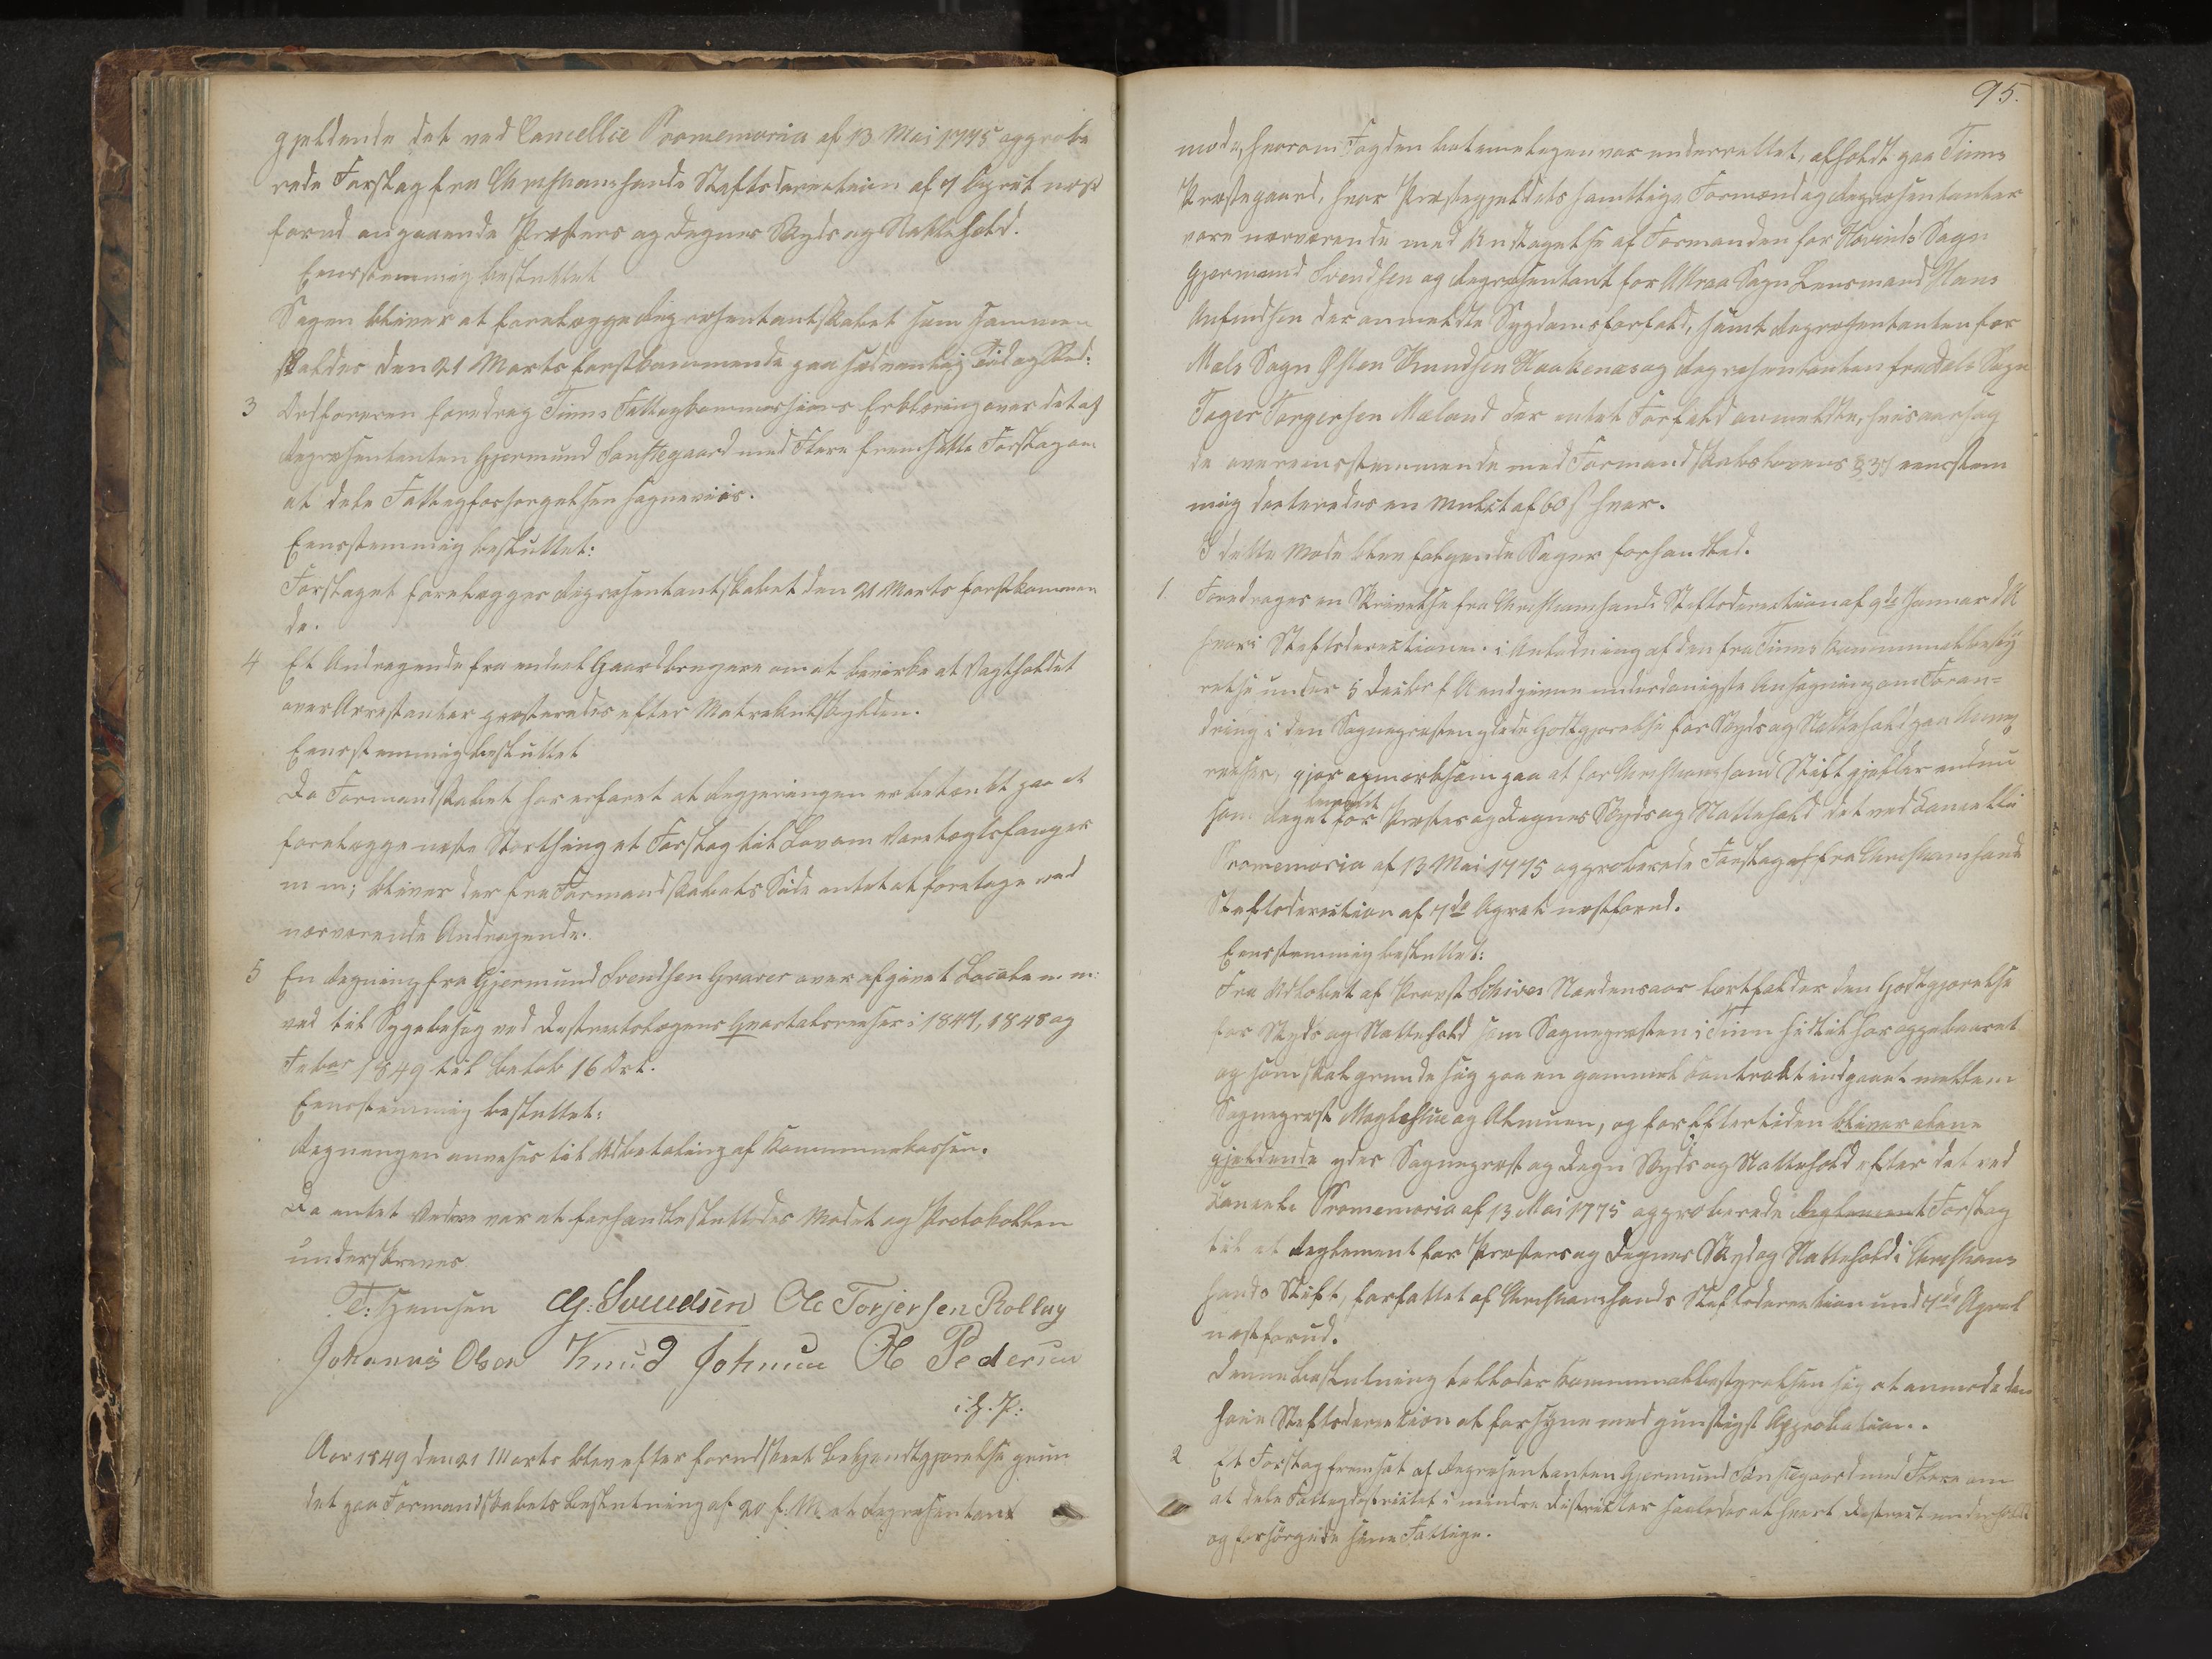 gjeldende det ved Cancellie Promemoria af 13 Mai 1775 approbe
rede Forslag fra Christianssands Stiftsdirection af 7 April næst
forud angaaende Præsters og Degnes Skyds og Nattehold.
Eenstemmig besluttet
Sagen bliver at forelægge Repræsentantskabet som sammen
kaldes den 21 Marts førstkommende paa sædvanlig Tid og Sted.
3 Ordføreren foredrog Tinns Fattigkommissions Erklæring over det af
Repræsentanten Gjermund Sønstegaard med Flere fremsatte Forslag om
at dele Fattigforsørgelsen sogneviis.
Eenstemmig besluttet:
Forslaget forelægges Repræsentantskabet den 21 Marts førstkommen
de.
4 Et Andragende fra endeel Gaardbrugere om at bevirke at Vagtholdet
over Arrestanter præsteredes efter Matrikulskylden.
Eenstemmig besluttet
Da Formandskabet har erfaret at Regjeringen er betænkt paa at
forelægge næste Storthing et Forslag til Lov om Varetægtsfanger
m m; bliver der fra Formandskabets Side intet at foretage ved
nærværende Andragende.
5 En Regning fra Gjermund Svendsen Graver over afgivet Locale m m:
ved til Sygebesøg ved Districtslægens Qvartalsreiser i 1847, 1848 og
Febar 1849 til Beløb 16 Ort.
Eenstemmig besluttet:
Regningen anvises til Udbetaling af Kommunekassen.
Da intet videre var at forhandle sluttedes Mødet og Protokollen
underskreves
G. Svendsen Ole Torjersen Rollag
Johannis Olsen Knud Johnsen Ole Pedersen
i. h. P:
Aar 1849 den 21 Marts blev efter forudskeet Bekjendtgjørelse grun
det paa Formandskabets Beslutning af 20 f. M. et Repræsentant
95.
møde, hvorom Fogden betimeligen var underrettet, afholdt paa Tinns
Præstegaard, hvor Præstegjeldets samtlige Formænd og Repræsentanter
vare nærværende med Undtagelse af Formanden for Hovinds Sogn
Gjermund Svendsen og Repræsentant for Attraa Sogn Lensmand Hans
Anfindsen der anmeldte Sygdomsforfald, samt Repræsentanten for
Mæls Sogn Østen Knudsen Haakenæs og Repræsentanten fra Dals Sogn
Torger Torgersen Mæland der intet Forfald anmeldte, hvisaarsag
de overeensstemmende med Formandskabslovens § 37 eenstem
mig dicteredes en Mulct af 60 ß hver.
I dette Møde blev følgende Sager forhandled.
1. Foredroges en Skrivelse fra Christianssands Stiftsdirection af 9de Januar d A
hvori Stiftsdirectionen i Anledning af den fra Tinns Kommunalbesty
relse under 5 Decbr f A andgivne underdanigste Ansøgning om Foran=
dring i den Sognepræsten ydede Godtgjørelse for Skyds og Nattehold paa Annex
reiser, gjør opmærksom paa at for Christianssand Stift gjelder endnu
som Reglement for Præsters og Degnes Skyds og Nattehold det ved Cancelli
Promemoria af 13 Mai 1775 approberede Forslag af fra Christianssands
Stiftsdirection af 7de April næstforud.
Eenstemmig besluttet:
Fra Udløbet af Provst Schives Naadensaar bortfalder den Godtgjørelse
for Skyds og Nattehold som Sognepræsten i Tinn hidtil har oppebaaret
og som skal grunde sig paa en gammel Contrakt indgaaet mellem
Sognepræst Maglestue og Almuen, og for Eftertiden bliver alene
gjeldende ydes Sognepræst og Degn Skyds og Nattehold efter det ved
Cancelli Promemoria af 13 Mai 1775 approberede Reglement Forslag
til et Reglement for Præsters og Degnes Skyds og Nattehold i Christians
sands Stift, forfattet af Christianssands Stiftsdirection und 7de April
næstforud.
Denne Beslutning tillader Kommunalbestyrelsen sig at anmode den
høie Stiftsdirection at forsyne med gunstigst Approbation.
2 Et Forslag fremsat af Repræsentanten Gjermund Sønstegaard med Flere om
at dele Fattigdistriktet i mindre Distrikter saaledes at hvert Distrikt underholdt
og forsørgede sine Fattige.